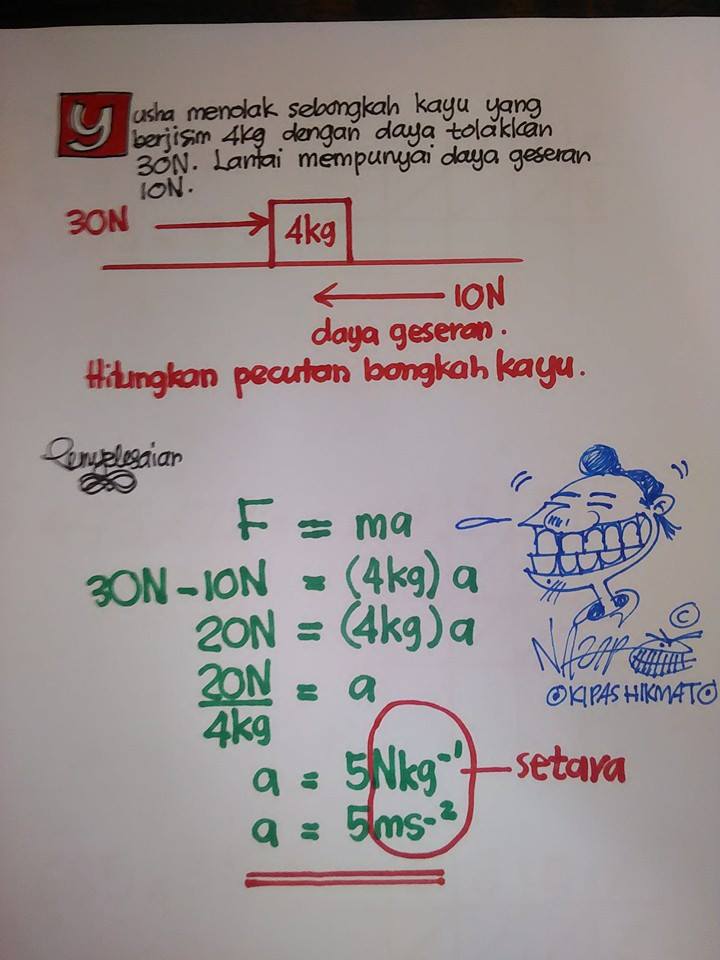 Yusha menolak sebongkah kayu yang
berjisim 4kg dengan daya tolakkan
30N. Lantai mempunyai daya geseran
10N.
30N 4kg
10N
daya geseran.
Hitungkan pecutan bongkah kayu.
Penyelesaian
F = ma
30N - 10N = (4kg) a
20N = (4kg) a
20N/4kg = a
a = 5Nkg⁻¹ setara
a = 5ms⁻²
©
KIPAS HIKMAT